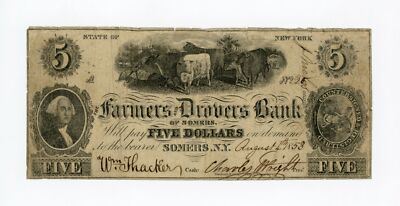 5 STATE OF NEW YORK 5
Farmers and Drovers Bank
OF SOMERS.
Will pay FIVE DOLLARS on demand
to the bearer SOMERS, N.Y. August 1853
Wm Thacker Cash. Charles Wright
FIVE FIVE